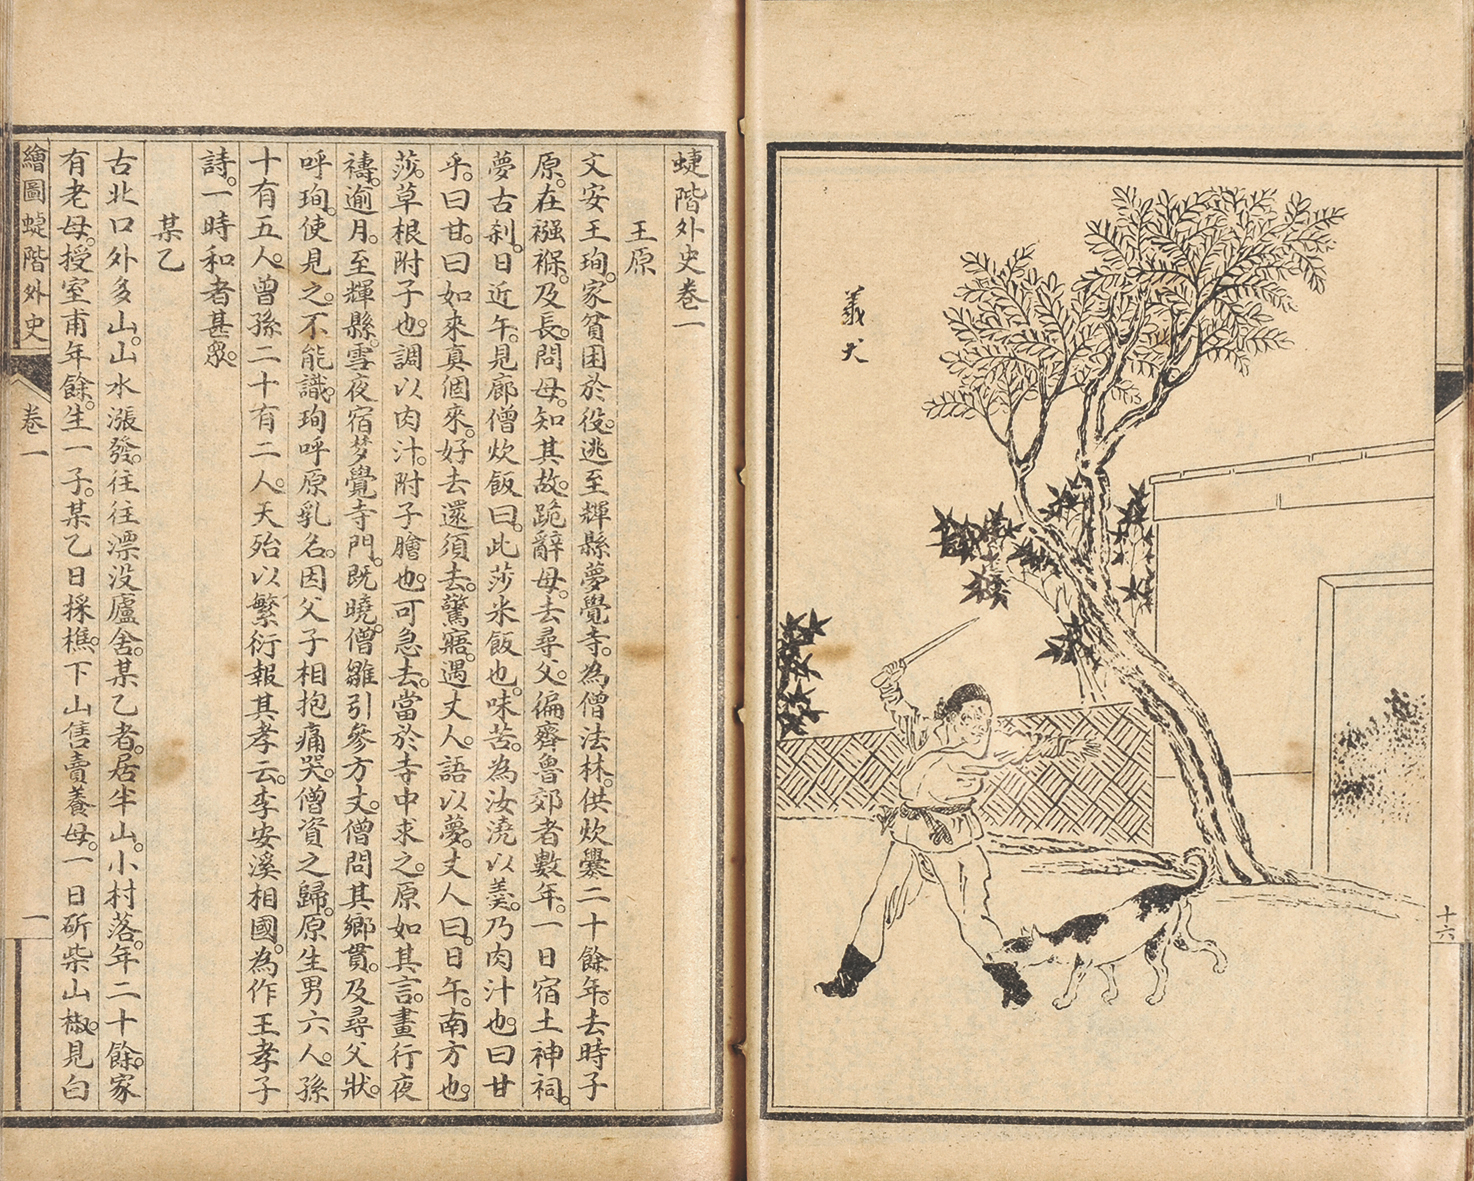 義犬
十六
蜨階外史卷一
王原
文安王珣。家貧困於役。逃至輝縣夢覺寺。為僧法林。供炊爨二十餘年。去時子
原。在襁褓。及長。問母。知其故。跪辭母。去尋父。徧齊魯郊者數年。一日宿土神祠。
夢古剎。日近午。見廊僧炊飯曰。此莎米飯也。味苦。為汝澆以羹。乃肉汁也。曰甘
乎。曰甘。曰如來真個來。好去還須去。驚寤。遇丈人。語以夢。丈人曰。日午。南方也。
莎。草根附子也。調以肉汁。附子膾也。可急去。當於寺中求之。原如其言。晝行夜
禱。逾月。至輝縣。雪夜宿梦覺寺門。既曉。僧雛引參方丈。僧問其鄉貫。及尋父狀。
呼珣。使見之。不能識。珣呼原乳名。因父子相抱痛哭。僧資之歸。原生男六人。孫
十有五人。曾孫二十有二人。天殆以繁衍報其孝云。李安溪相國。為作王孝子
詩。一時和者甚眾。
某乙
古北口外多山。山水漲發。往往漂没廬舍。某乙者。居半山。小村落。年二十餘。家
有老母。授室甫年餘。生一子。某乙日採樵。下山售賣養母。一日斫柴山椒。見白
繪圖蜨階外史
卷一
一